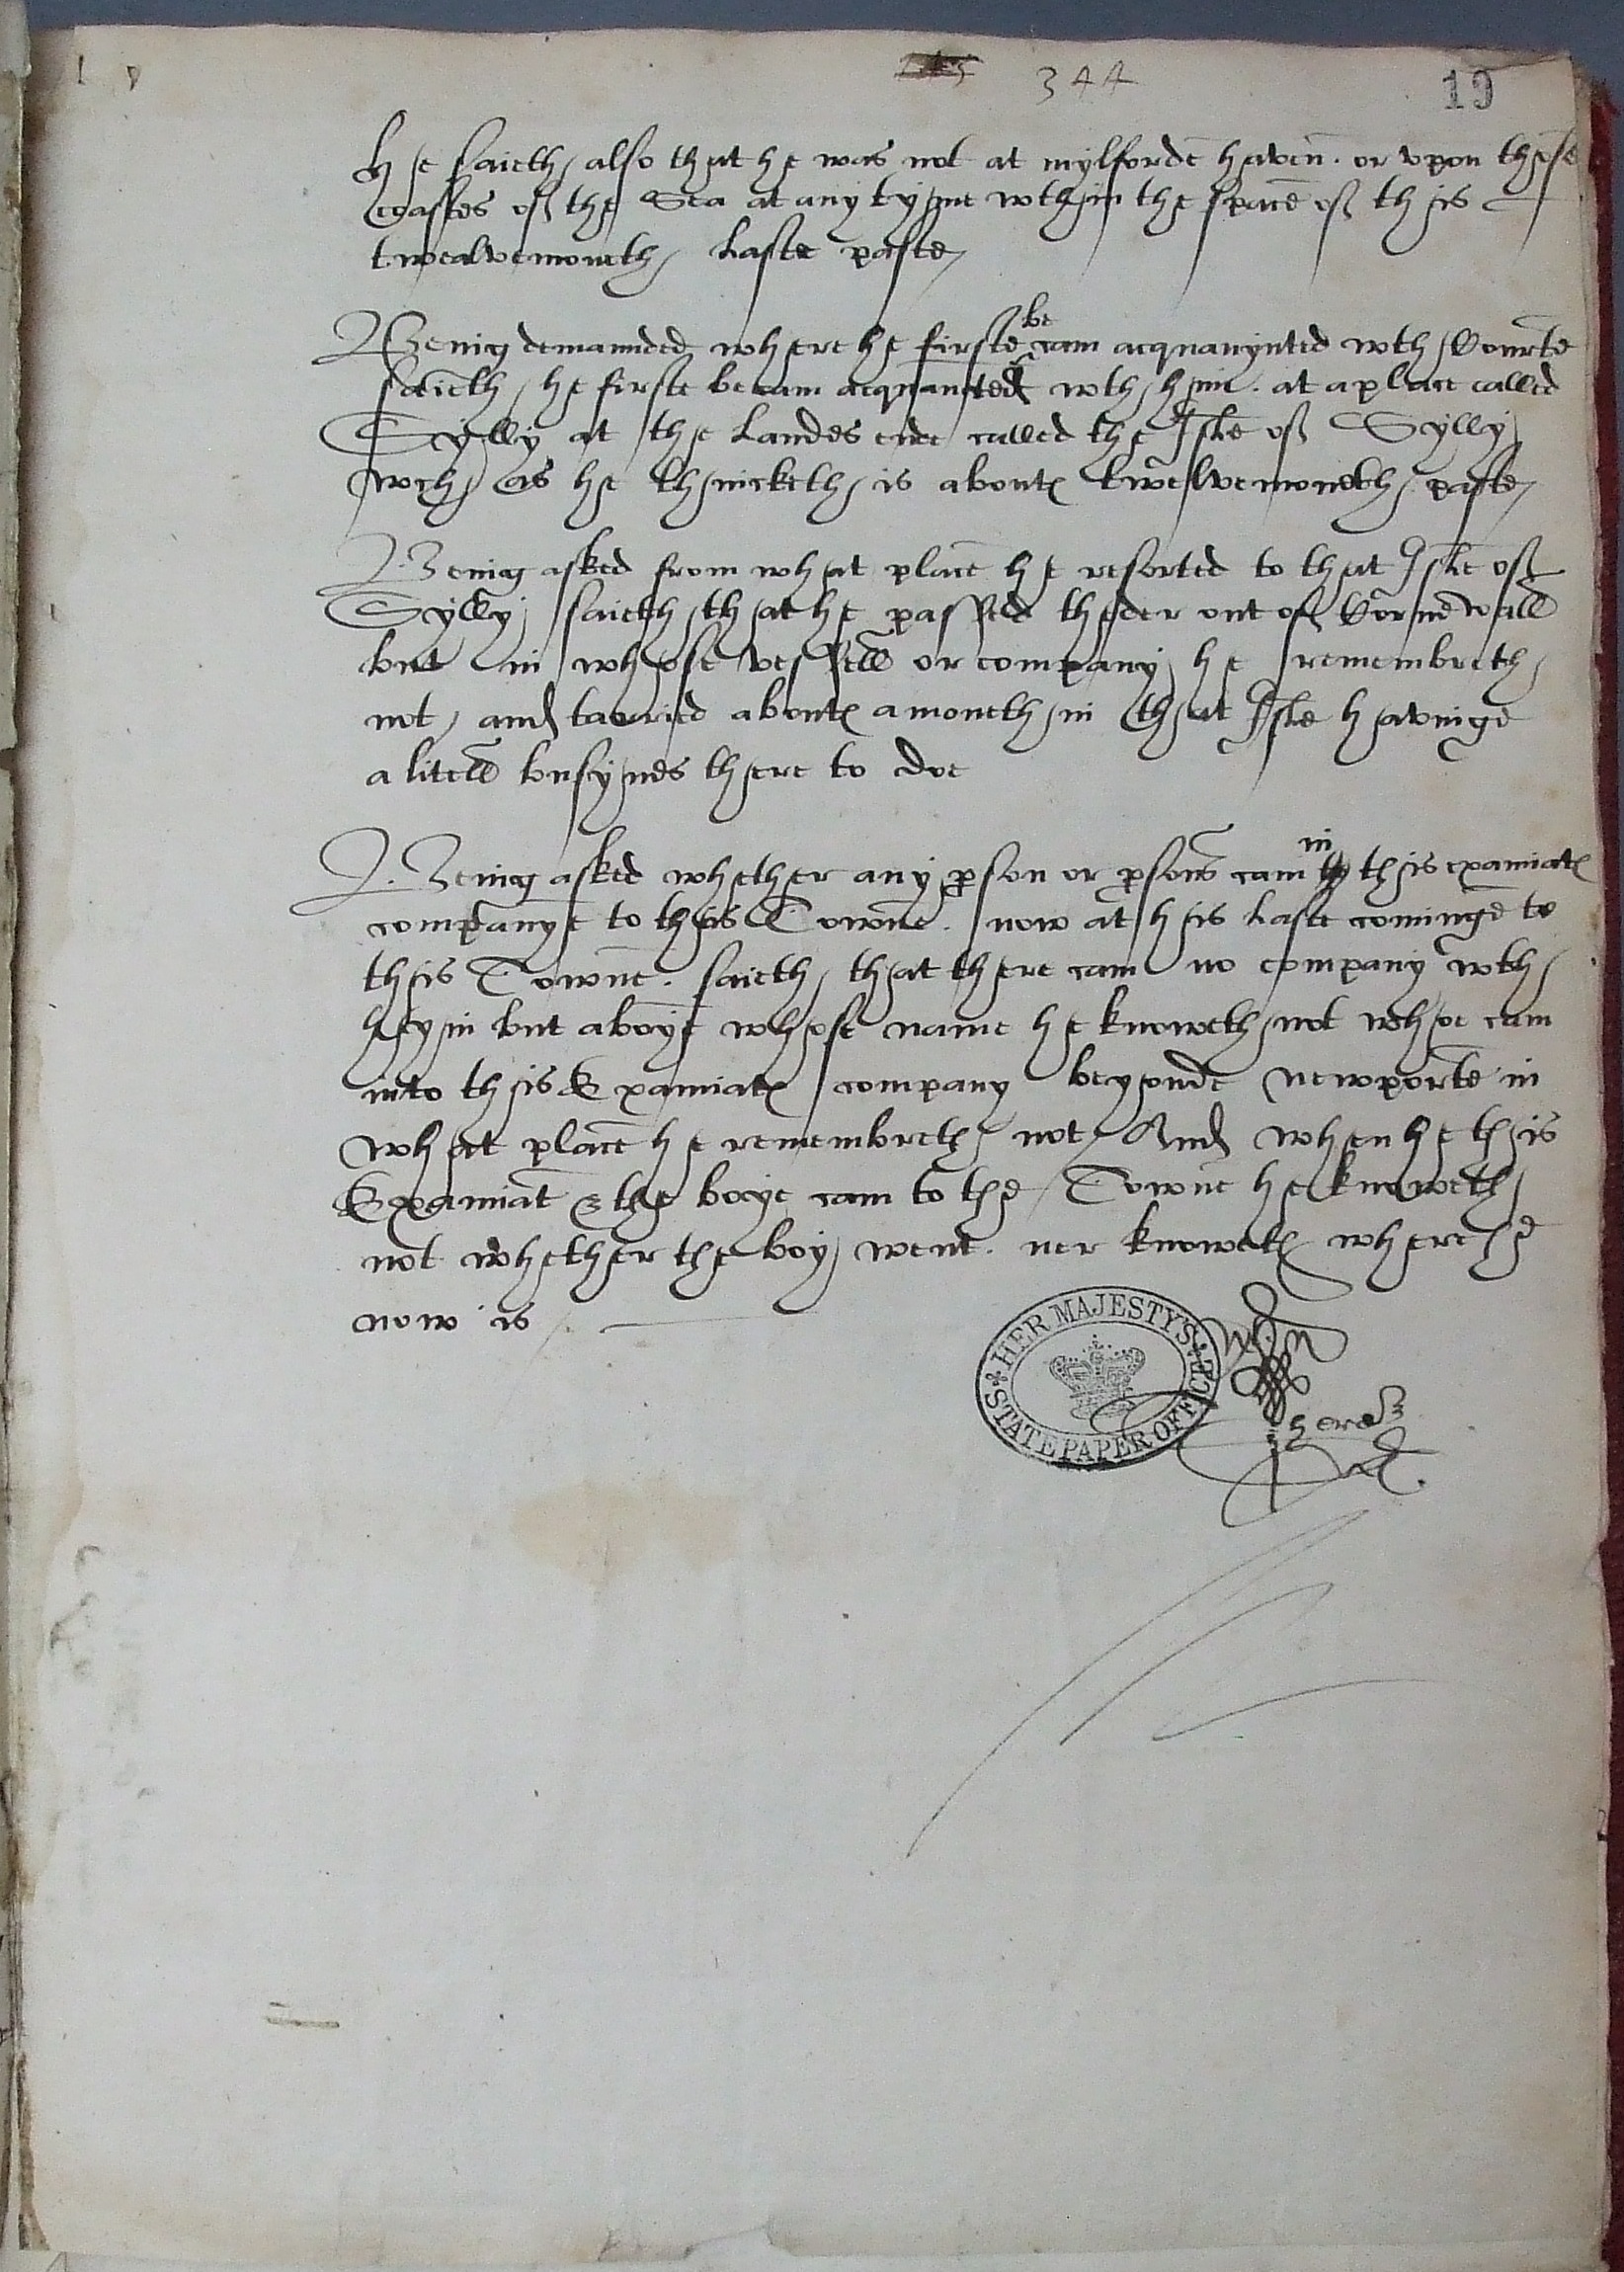 344
19
he saieth also that he was not at mylforde haven. or upon those
coastes of the Sea at any tyme wthin the space of this
twealvemoneth laste paste
Being demaunded where he firste be cam acquaynted wth Courte
saieth, he firste becam acquaincted wth hym. at a place called
Scylly at the landes ende called the Isle of Scylly
wch as he thincketh is about twelvemoneth paste
Being asked from what place he resorted to that Isle of
Scylly saieth that he passed theder out of Cornewall
but in whose vessell or company he remembreth
not, and tarried about a moneth in that Isle havinge
a litell busynes there to doe
Being asked whether any pson or psons cam in this examiat
companye to this Towne. now at his laste cominge to
this Towne. saieth that there cam no company wth
hym but a boye whose name he knoweth not whoe cam
into this Examiat company beyonde newporte in
what place he remembreth not And when he this
Examiat & the boye cam to the Towne he knoweth
not whether the boy went. ner knoweth where he
now is
HER MAJESTY'S STATE PAPER OFFICE